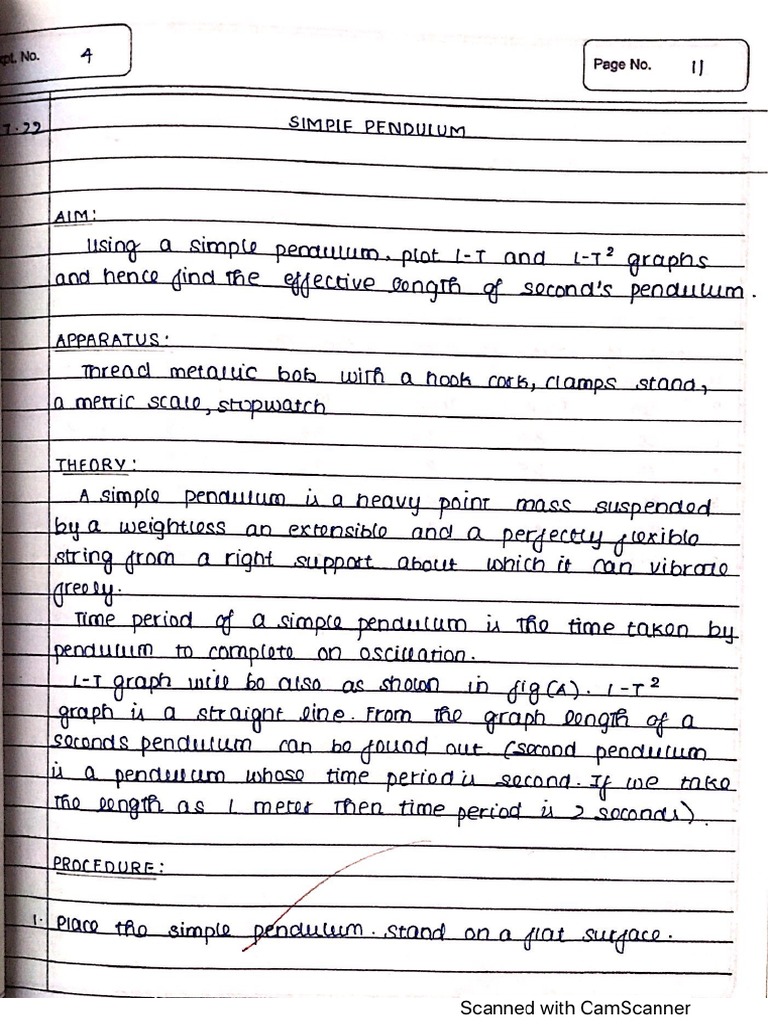 pt. No. 4
Page No. 11
7.22
SIMPLE PENDULUM
AIM:
Using a simple pendulum, plot l-T and L-T² graphs
and hence find the effective length of second's pendulum.
APPARATUS:
Thread metallic bob with a hook cork, clamps stand,
a metric scale, stopwatch
THEORY:
A simple pendulum is a heavy point mass suspended
by a weightless an extensible and a perfectly flexible
string from a right support about which it can vibrate
freely.
Time period of a simple pendulum is the time taken by
pendulum to complete on oscillation.
L-T graph will be also as shown in fig(A). l-T²
graph is a straight line. From the graph length of a
seconds pendulum can be found out (second pendulum
is a pendulum whose time period is second. If we take
the length as 1 meter then time period is 2 seconds).
PROCEDURE:
1. Place the simple pendulum. stand on a flat surface.
Scanned with CamScanner